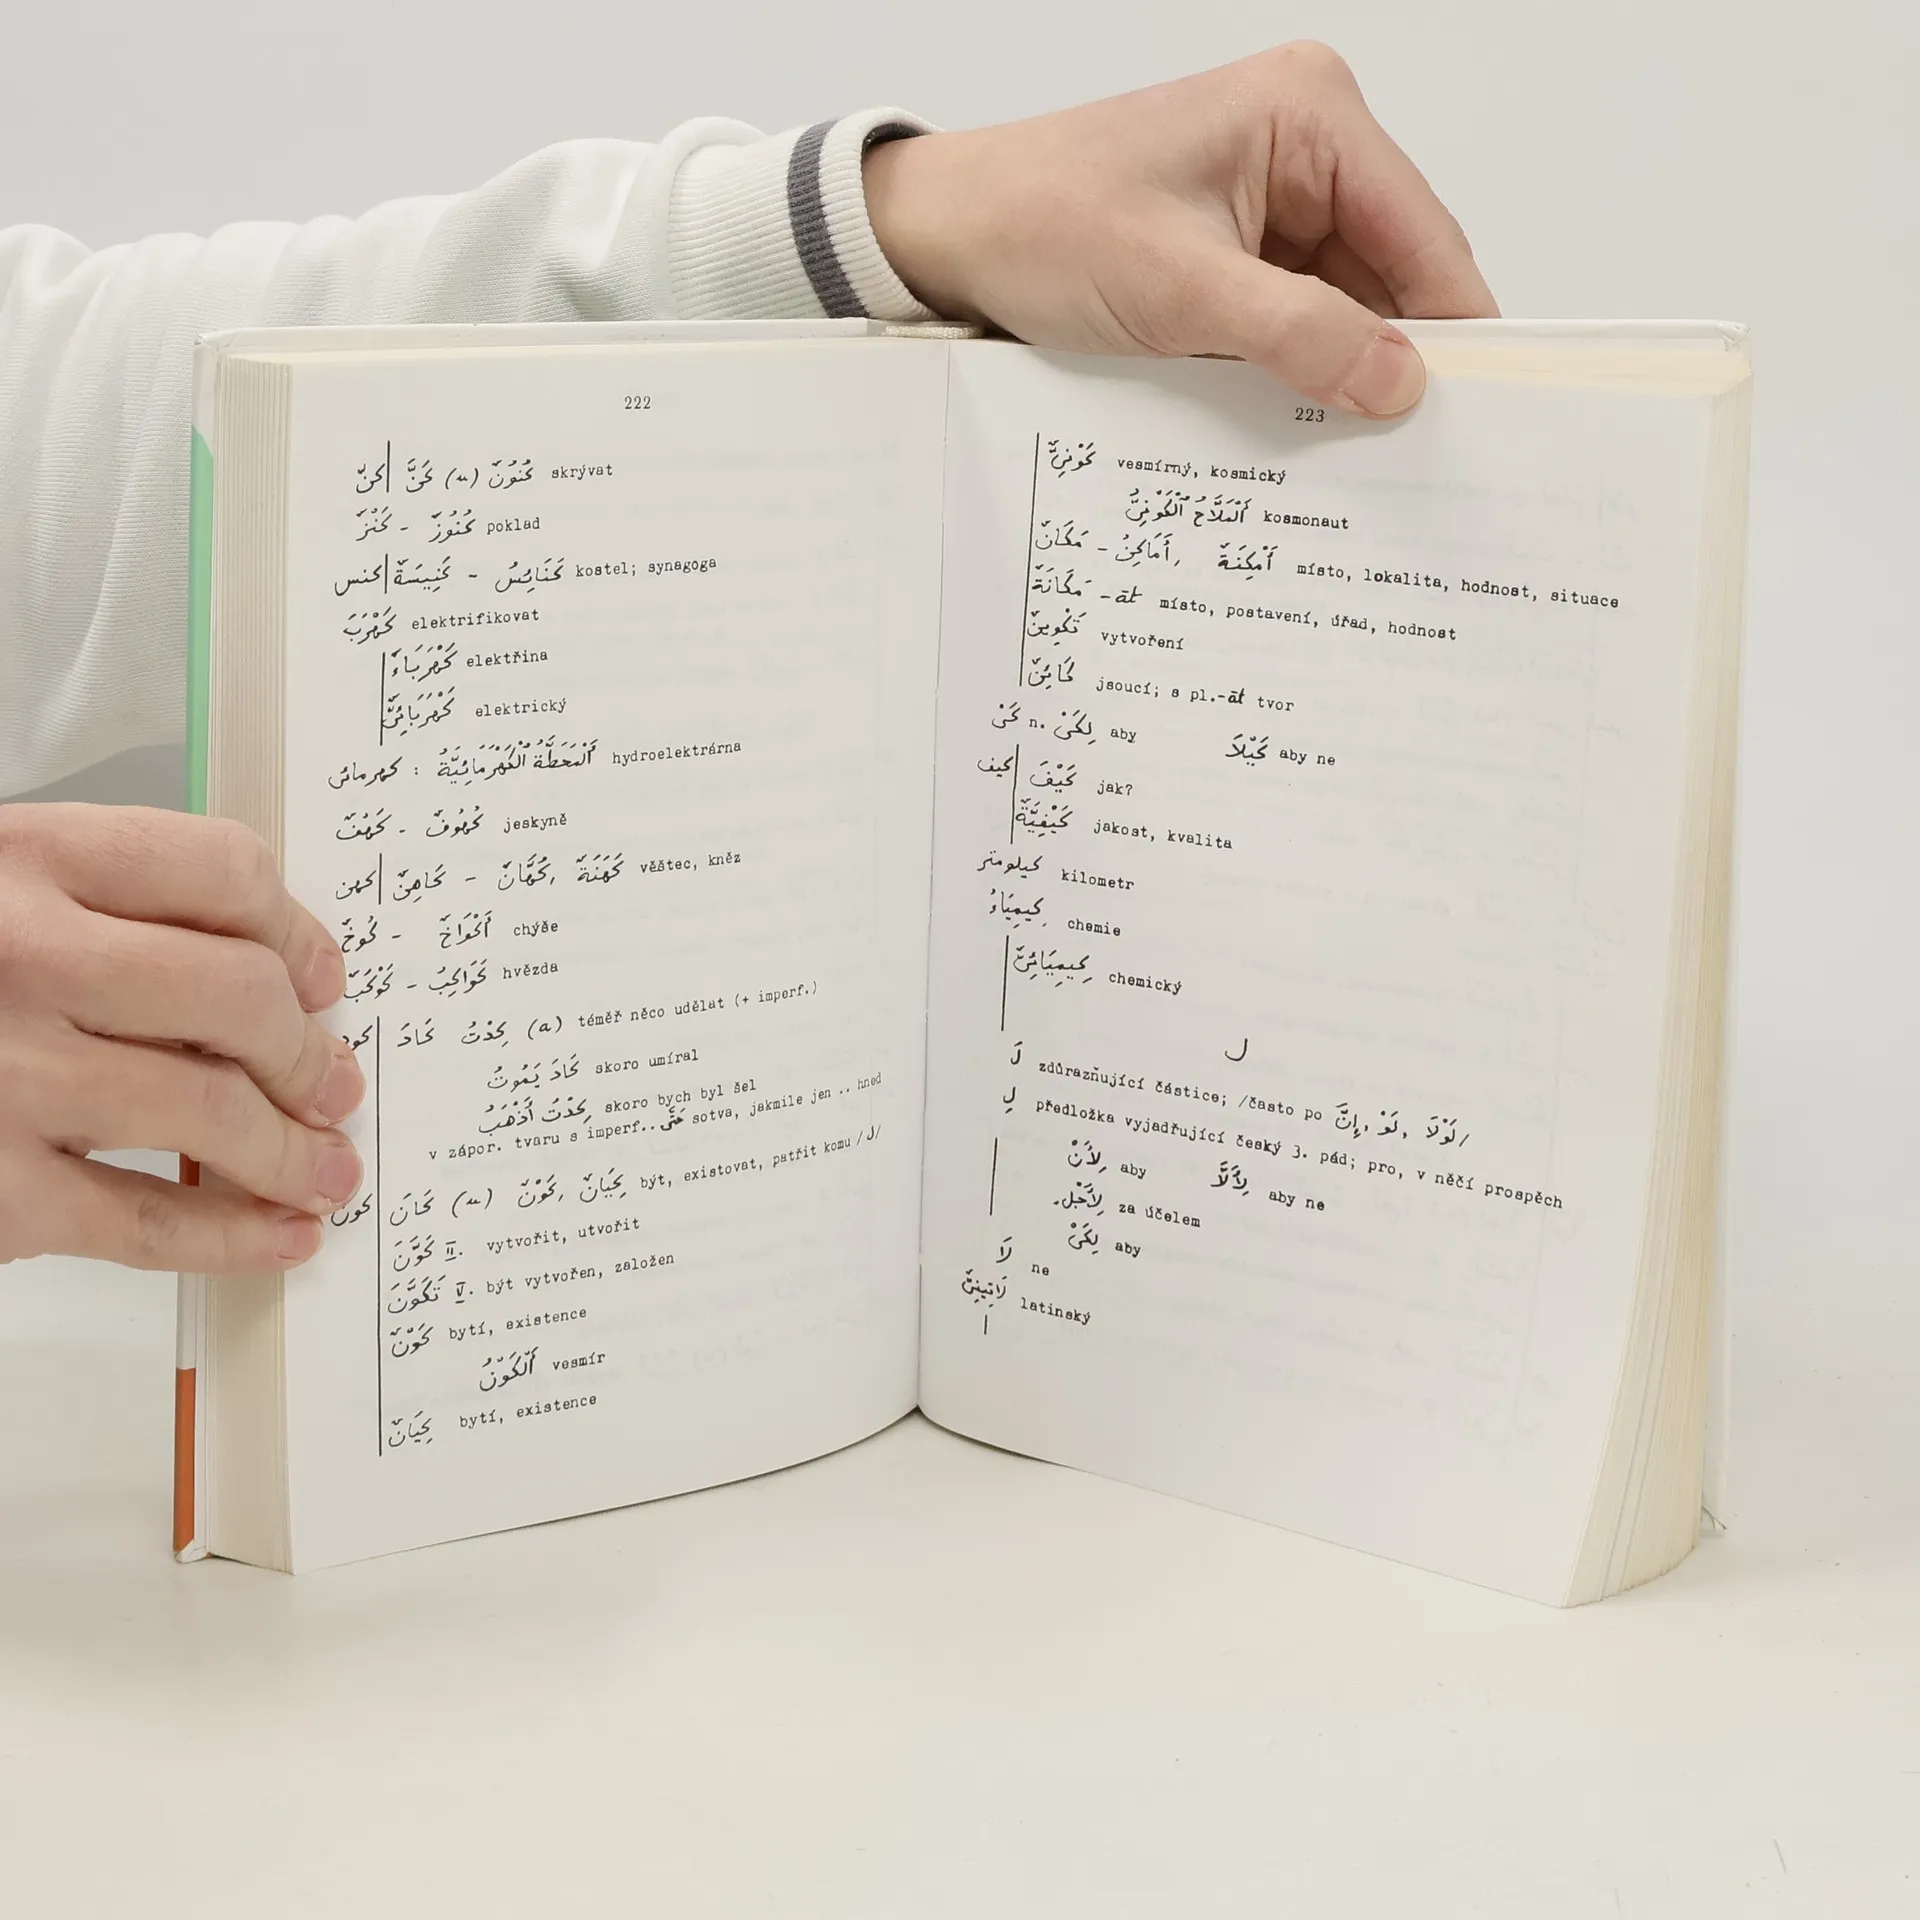 222
كنّ | كَنَّ (u) كُنُونٌ skrývat
كَنْزٌ - كُنُوزٌ poklad
كنس | كَنِيسَةٌ - كَنَائِسُ kostel; synagoga
كَهْرَبَ elektrifikovat
كَهْرَبَاءُ elektřina
كَهْرَبَائِيٌّ elektrický
كهرمائى : اَلْمَحَطَّةُ الْكَهْرَمَائِيَّةُ hydroelektrárna
كَهْفٌ - كُهُوفٌ jeskyně
كهن | كَاهِنٌ - كُهَّانٌ, كَهَنَةٌ věštec, kněz
كُوخٌ - أَكْوَاخٌ chýše
كَوْكَبٌ - كَوَاكِبُ hvězda
كود | كَادَ كِدْتُ (a) téměř něco udělat (+ imperf.)
كَادَ يَمُوتُ skoro umíral
كِدْتُ أَذْهَبُ skoro bych byl šel
v zápor. tvaru s imperf.. حَتَّى sotva, jakmile jen .. hned
كون | كَانَ (u) كَوْنٌ, كِيَانٌ být, existovat, patřit komu /ل/
كَوَّنَ II. vytvořit, utvořit
تَكَوَّنَ V. být vytvořen, založen
كَوْنٌ bytí, existence
اَلْكَوْنُ vesmír
كِيَانٌ bytí, existence
223
كَوْنِيٌّ vesmírný, kosmický
اَلْمَلَّاحُ الْكَوْنِيُّ kosmonaut
مَكَانٌ - أَمَاكِنُ, أَمْكِنَةٌ místo, lokalita, hodnost, situace
مَكَانَةٌ -āt místo, postavení, úřad, hodnost
تَكْوِينٌ vytvoření
كَائِنٌ jsoucí; s pl.-āt tvor
كَيْ n. لِكَيْ aby كَيْلَا aby ne
كيف | كَيْفَ jak?
كَيْفِيَّةٌ jakost, kvalita
كيلومتر kilometr
كِيمِيَاءُ chemie
كِيمِيَائِيٌّ chemický
ل
لَ zdůrazňující částice; /často po إِنَّ, لَوْ, لَوْلَا/
لِ předložka vyjadřující český 3. pád; pro, v něčí prospěch
لِأَنْ aby لِأَلَّا aby ne
لِأَجْلِ za účelem
لِكَيْ aby
لَا ne
لَاتِينِيٌّ latinský